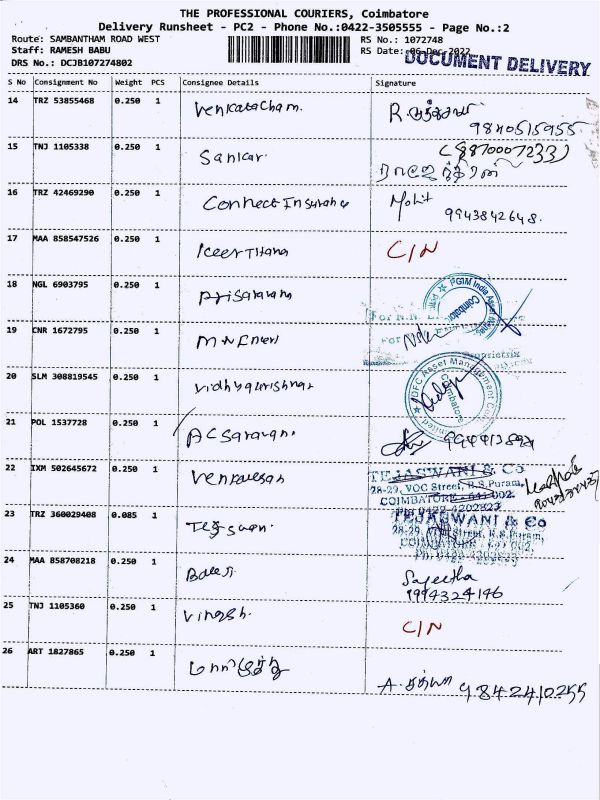 THE PROFESSIONAL COURIERS, Coimbatore
Delivery Runsheet - PC2 - Phone No.:0422-3505555 - Page No.:2
Route: SAMBANTHAM ROAD WEST RS No.: 1072748
Staff: RAMESH BABU RS Date: 06-Dec-2022
DRS No.: DCJB107274802 DOCUMENT DELIVERY
S No Consignment No Weight PCS Consignee Details Signature
14 TRZ 53855468 0.250 1 Venkatacham. R.
9840515955
15 TNJ 1105338 0.250 1 Sankar. (8870007233)
16 TRZ 42469290 0.250 1 Connect Insurance Mohit
9943842648.
17 MAA 858547526 0.250 1 Keerthana C/N
18 NGL 6903795 0.250 1 PGIM India Asset
Coimbatore
19 CNR 1672795 0.250 1
20 SLM 308819545 0.250 1 Vidhyakrishnan Asset Management
Coimbatore
21 POL 1537728 0.250 1 AC Saravan.
22 IXM 502645672 0.250 1 Venkatesan TEJASWANI & Co
28-29, VOC Street, R.S.Puram,
COIMBATORE - 641 002.
Ph 0422-4202823
23 TRZ 360029408 0.085 1 TEJASWANI & Co
24 MAA 858708218 0.250 1 Balaji Sajeetha
1994324146
25 TNJ 1105360 0.250 1 Vinoth. C/N
26 ART 1827865 0.250 1 மாரிமுத்து
A. சத்யா 9842410255